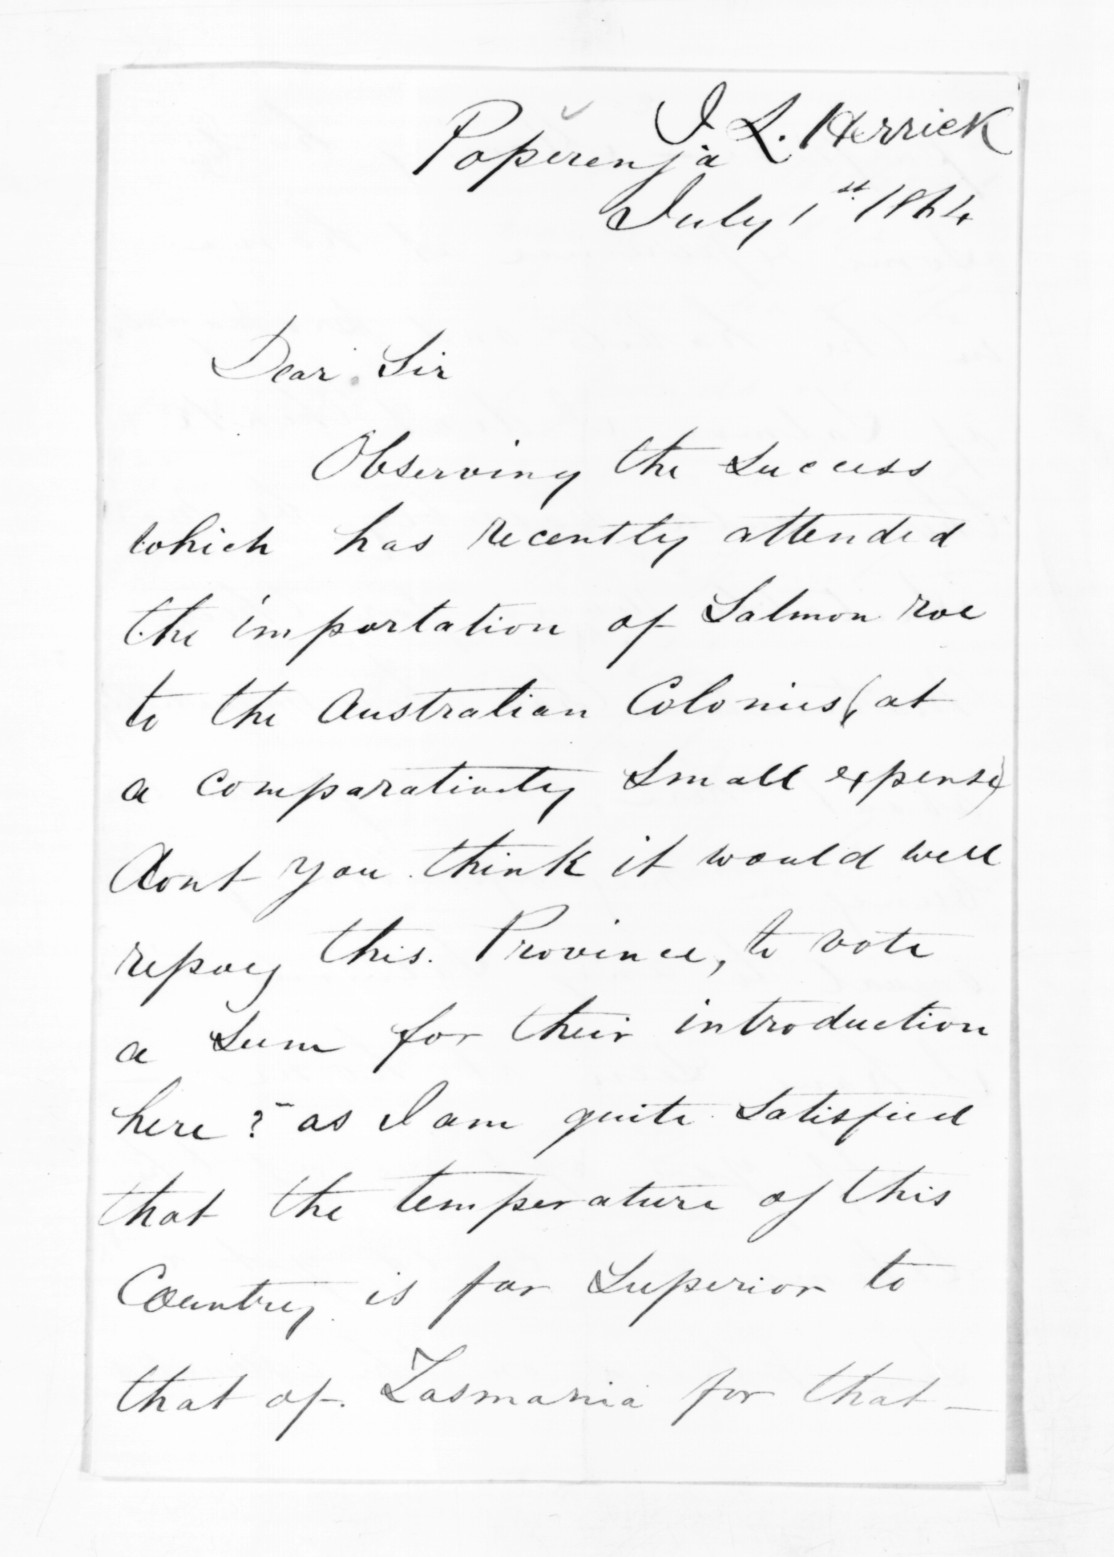 J. L. Herrick
July 1st 1864
Dear Sir
Observing the success
which has recently attended
the importation of Salmon roe
to the Australian Colonies (at
a comparatively small expense)
dont you think it would well
repay this Province, to vote
a sum for their introduction
here? - as I am quite satisfied
that the temperature of this
Country is far superior to
that of Tasmania for that -